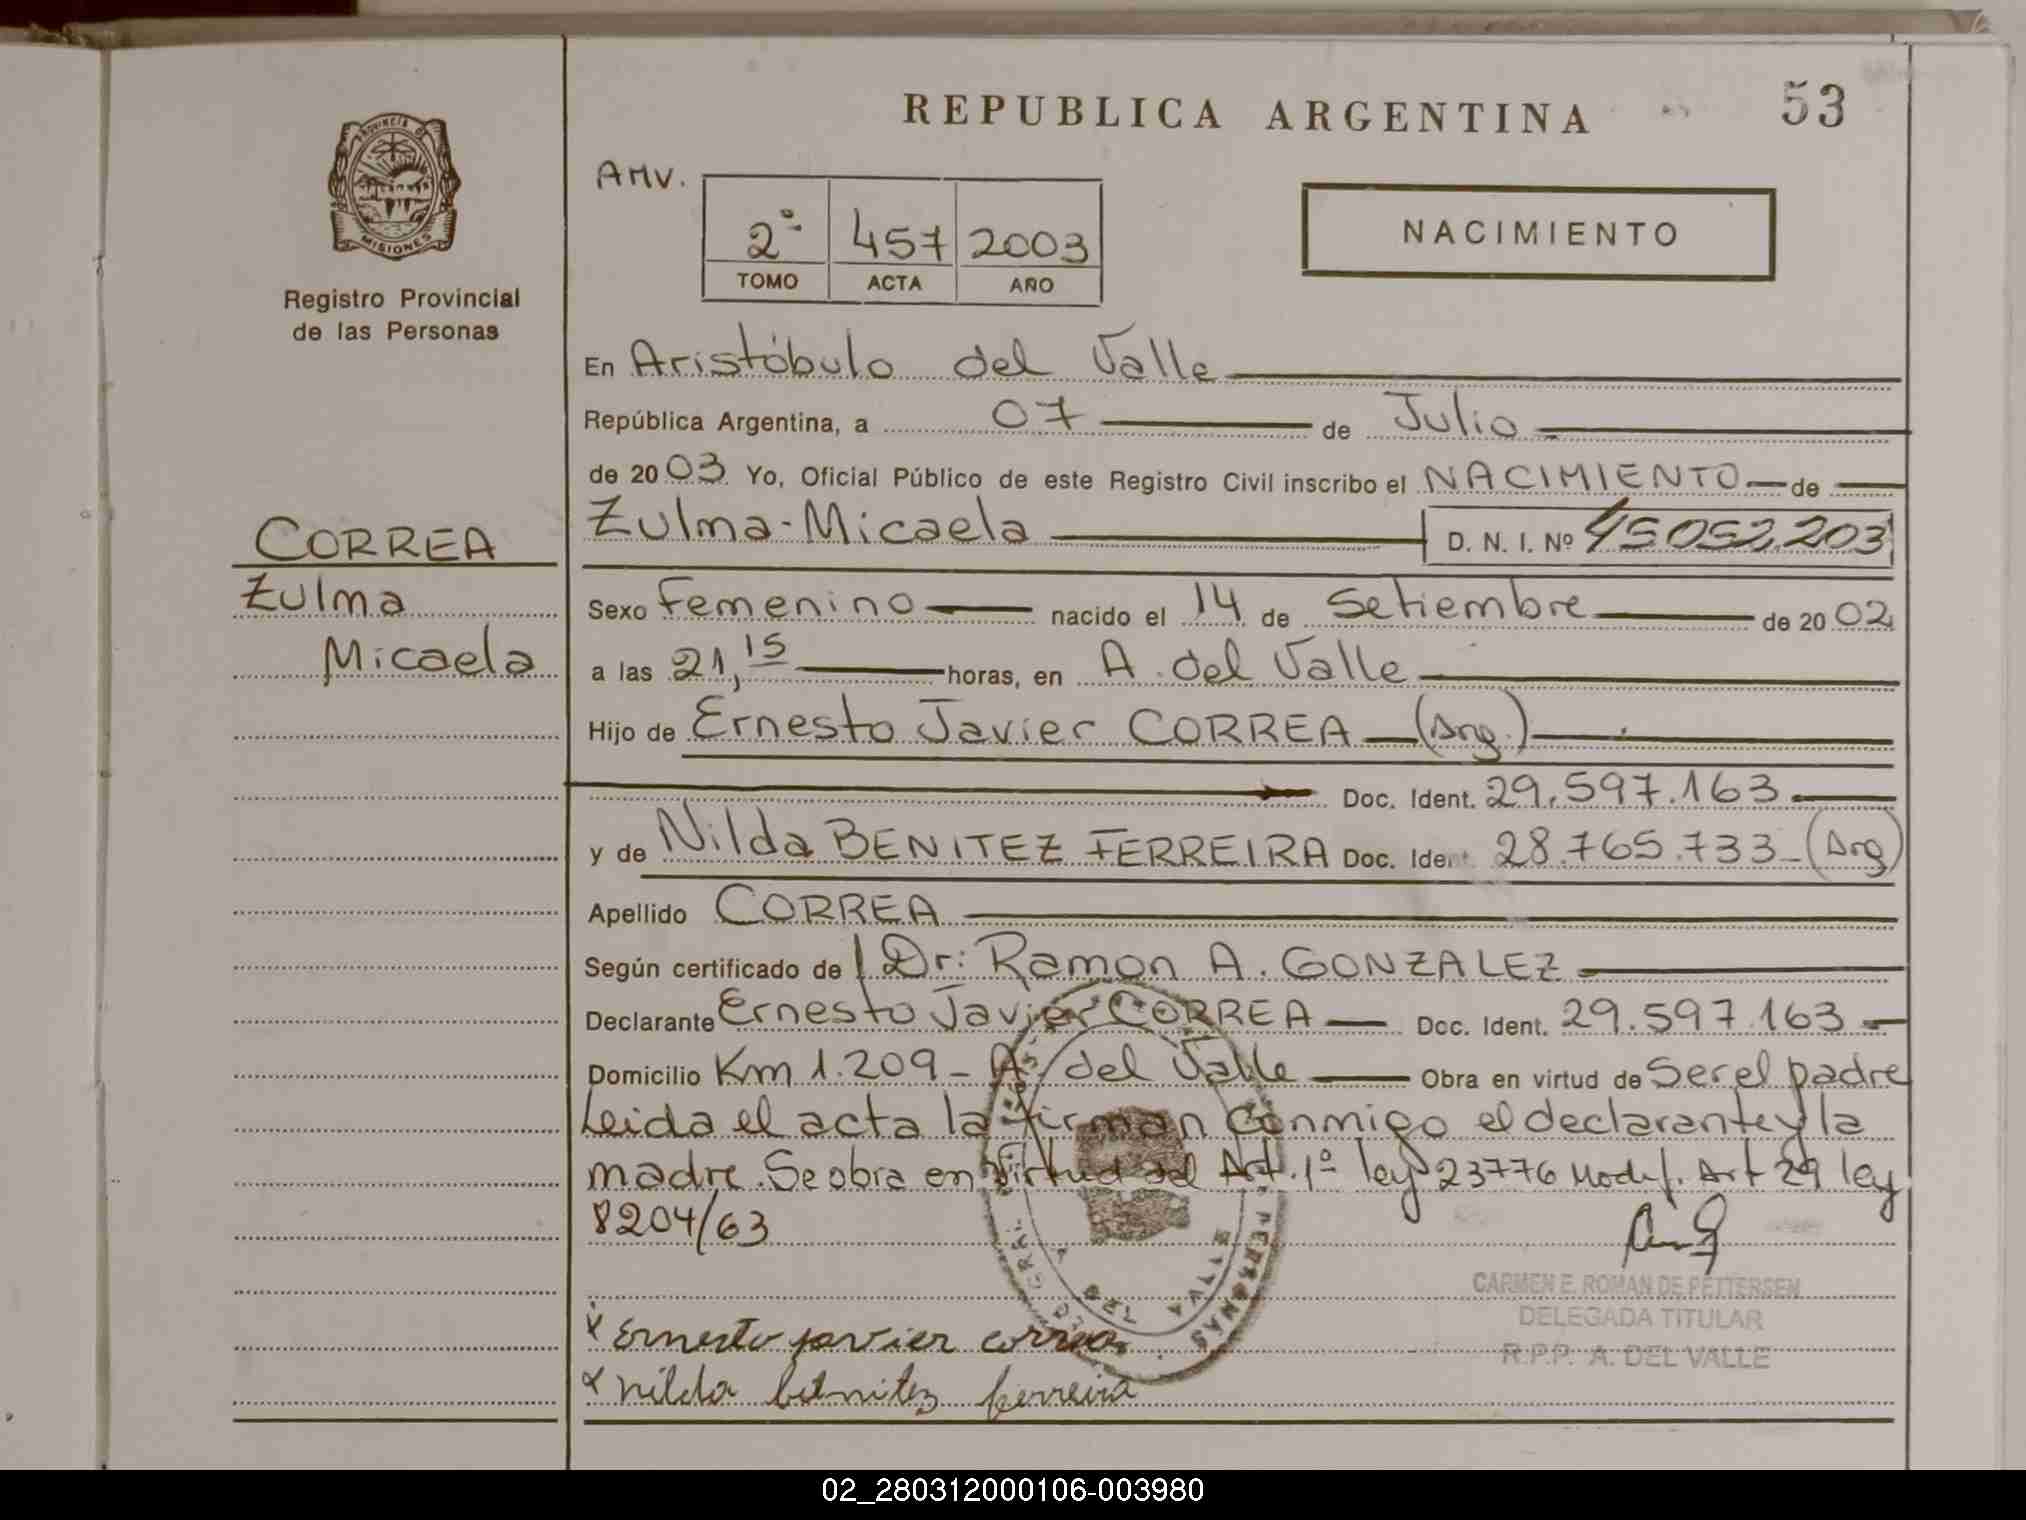 REPUBLICA ARGENTINA
53
PROVINCIA DE
MISIONES
Registro Provincial
de las Personas
AMV.
2º 457 2003
TOMO ACTA AÑO
NACIMIENTO
En Aristóbulo del Valle
República Argentina, a 07 de Julio
de 2003 Yo, Oficial Público de este Registro Civil inscribo el NACIMIENTO de
CORREA
Zulma
Micaela
Zulma-Micaela D. N. I. Nº 45.052.203
Sexo Femenino nacido el 14 de Setiembre de 2002
a las 21,15 horas, en A. del Valle
Hijo de Ernesto Javier CORREA (Arg.)
Doc. Ident. 29.597.163
y de Nilda BENITEZ FERREIRA Doc. Ident. 28.765.733 (Arg)
Apellido CORREA
Según certificado de Dr: Ramon A. GONZALEZ
Declarante Ernesto Javier CORREA Doc. Ident. 29.597.163
Domicilio Km 1.209 - A. del Valle Obra en virtud de Ser el padre
Leida el acta la firman conmigo el declarante y la
madre. Se obra en virtud del Art. 1º ley 23776 Modif. Art 29 ley
8204/63
CARMEN E. ROMAN DE PETTERSEN
DELEGADA TITULAR
R.P.P. A. DEL VALLE
x Ernesto javier correa
x nilda benitez ferreira
02_280312000106-003980